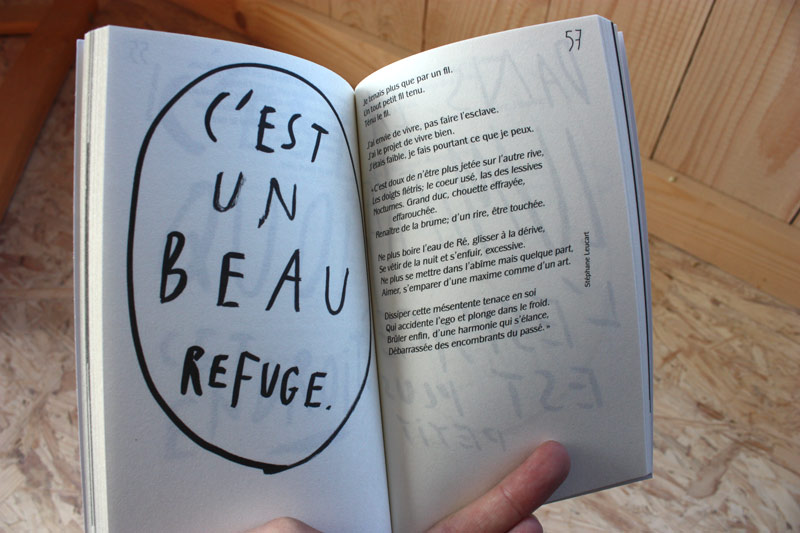 C'EST
UN
BEAU
REFUGE.
57
Je tenais plus que par un fil.
Un tout petit fil tenu.
Tenu le fil.
J'ai envie de vivre, pas faire l'esclave.
J'ai le projet de vivre bien.
J'étais faible, je fais pourtant ce que je peux.
«C'est doux de n'être plus jetée sur l'autre rive,
Les doigts flétris; le coeur usé, las des lessives
Nocturnes. Grand duc, chouette effrayée,
effarouchée.
Renaître de la brume; d'un rire, être touchée.
Ne plus boire l'eau de Ré, glisser à la dérive,
Se vêtir de la nuit et s'enfuir, excessive.
Ne plus se mettre dans l'abîme mais quelque part,
Aimer, s'emparer d'une maxime comme d'un art.
Dissiper cette mésentente tenace en soi
Qui accidente l'ego et plonge dans le froid.
Brûler enfin, d'une harmonie qui s'élance,
Débarrassée des encombrants du passé.»
Stéphane Leucart